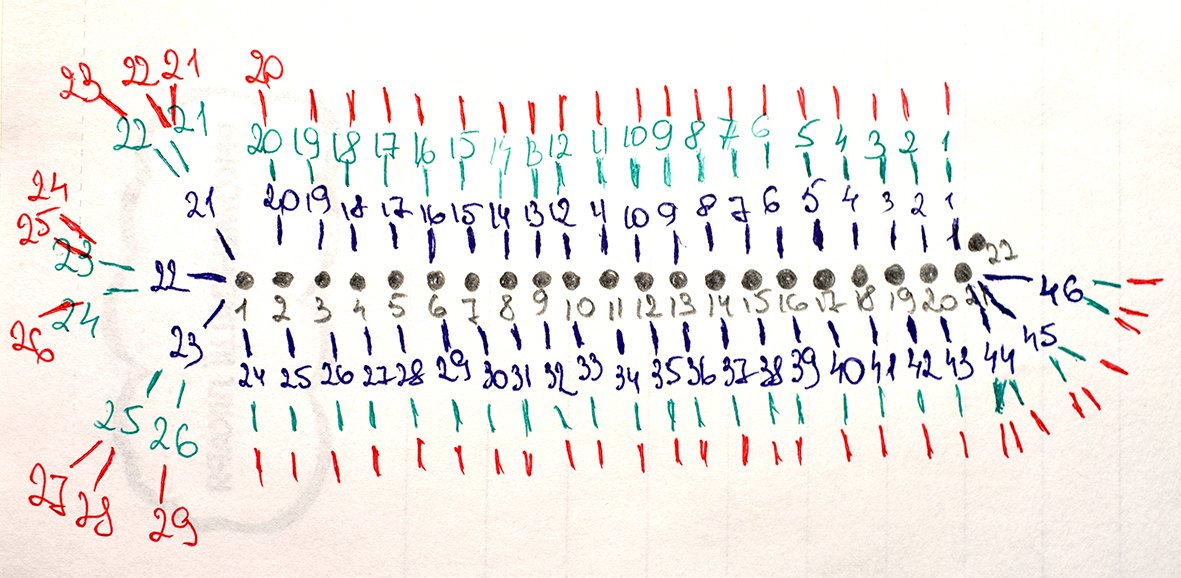 23 22 21 20
22 21 20 19 18 17 16 15 14 13 12 11 10 9 8 7 6 5 4 3 2 1
24
21 20 19 18 17 16 15 14 13 12 11 10 9 8 7 6 5 4 3 2 1
25
23
22
22
46
1 2 3 4 5 6 7 8 9 10 11 12 13 14 15 16 17 18 19 20 21
24
26
23
45
24 25 26 27 28 29 30 31 32 33 34 35 36 37 38 39 40 41 42 43 44
25 26
27 28 29